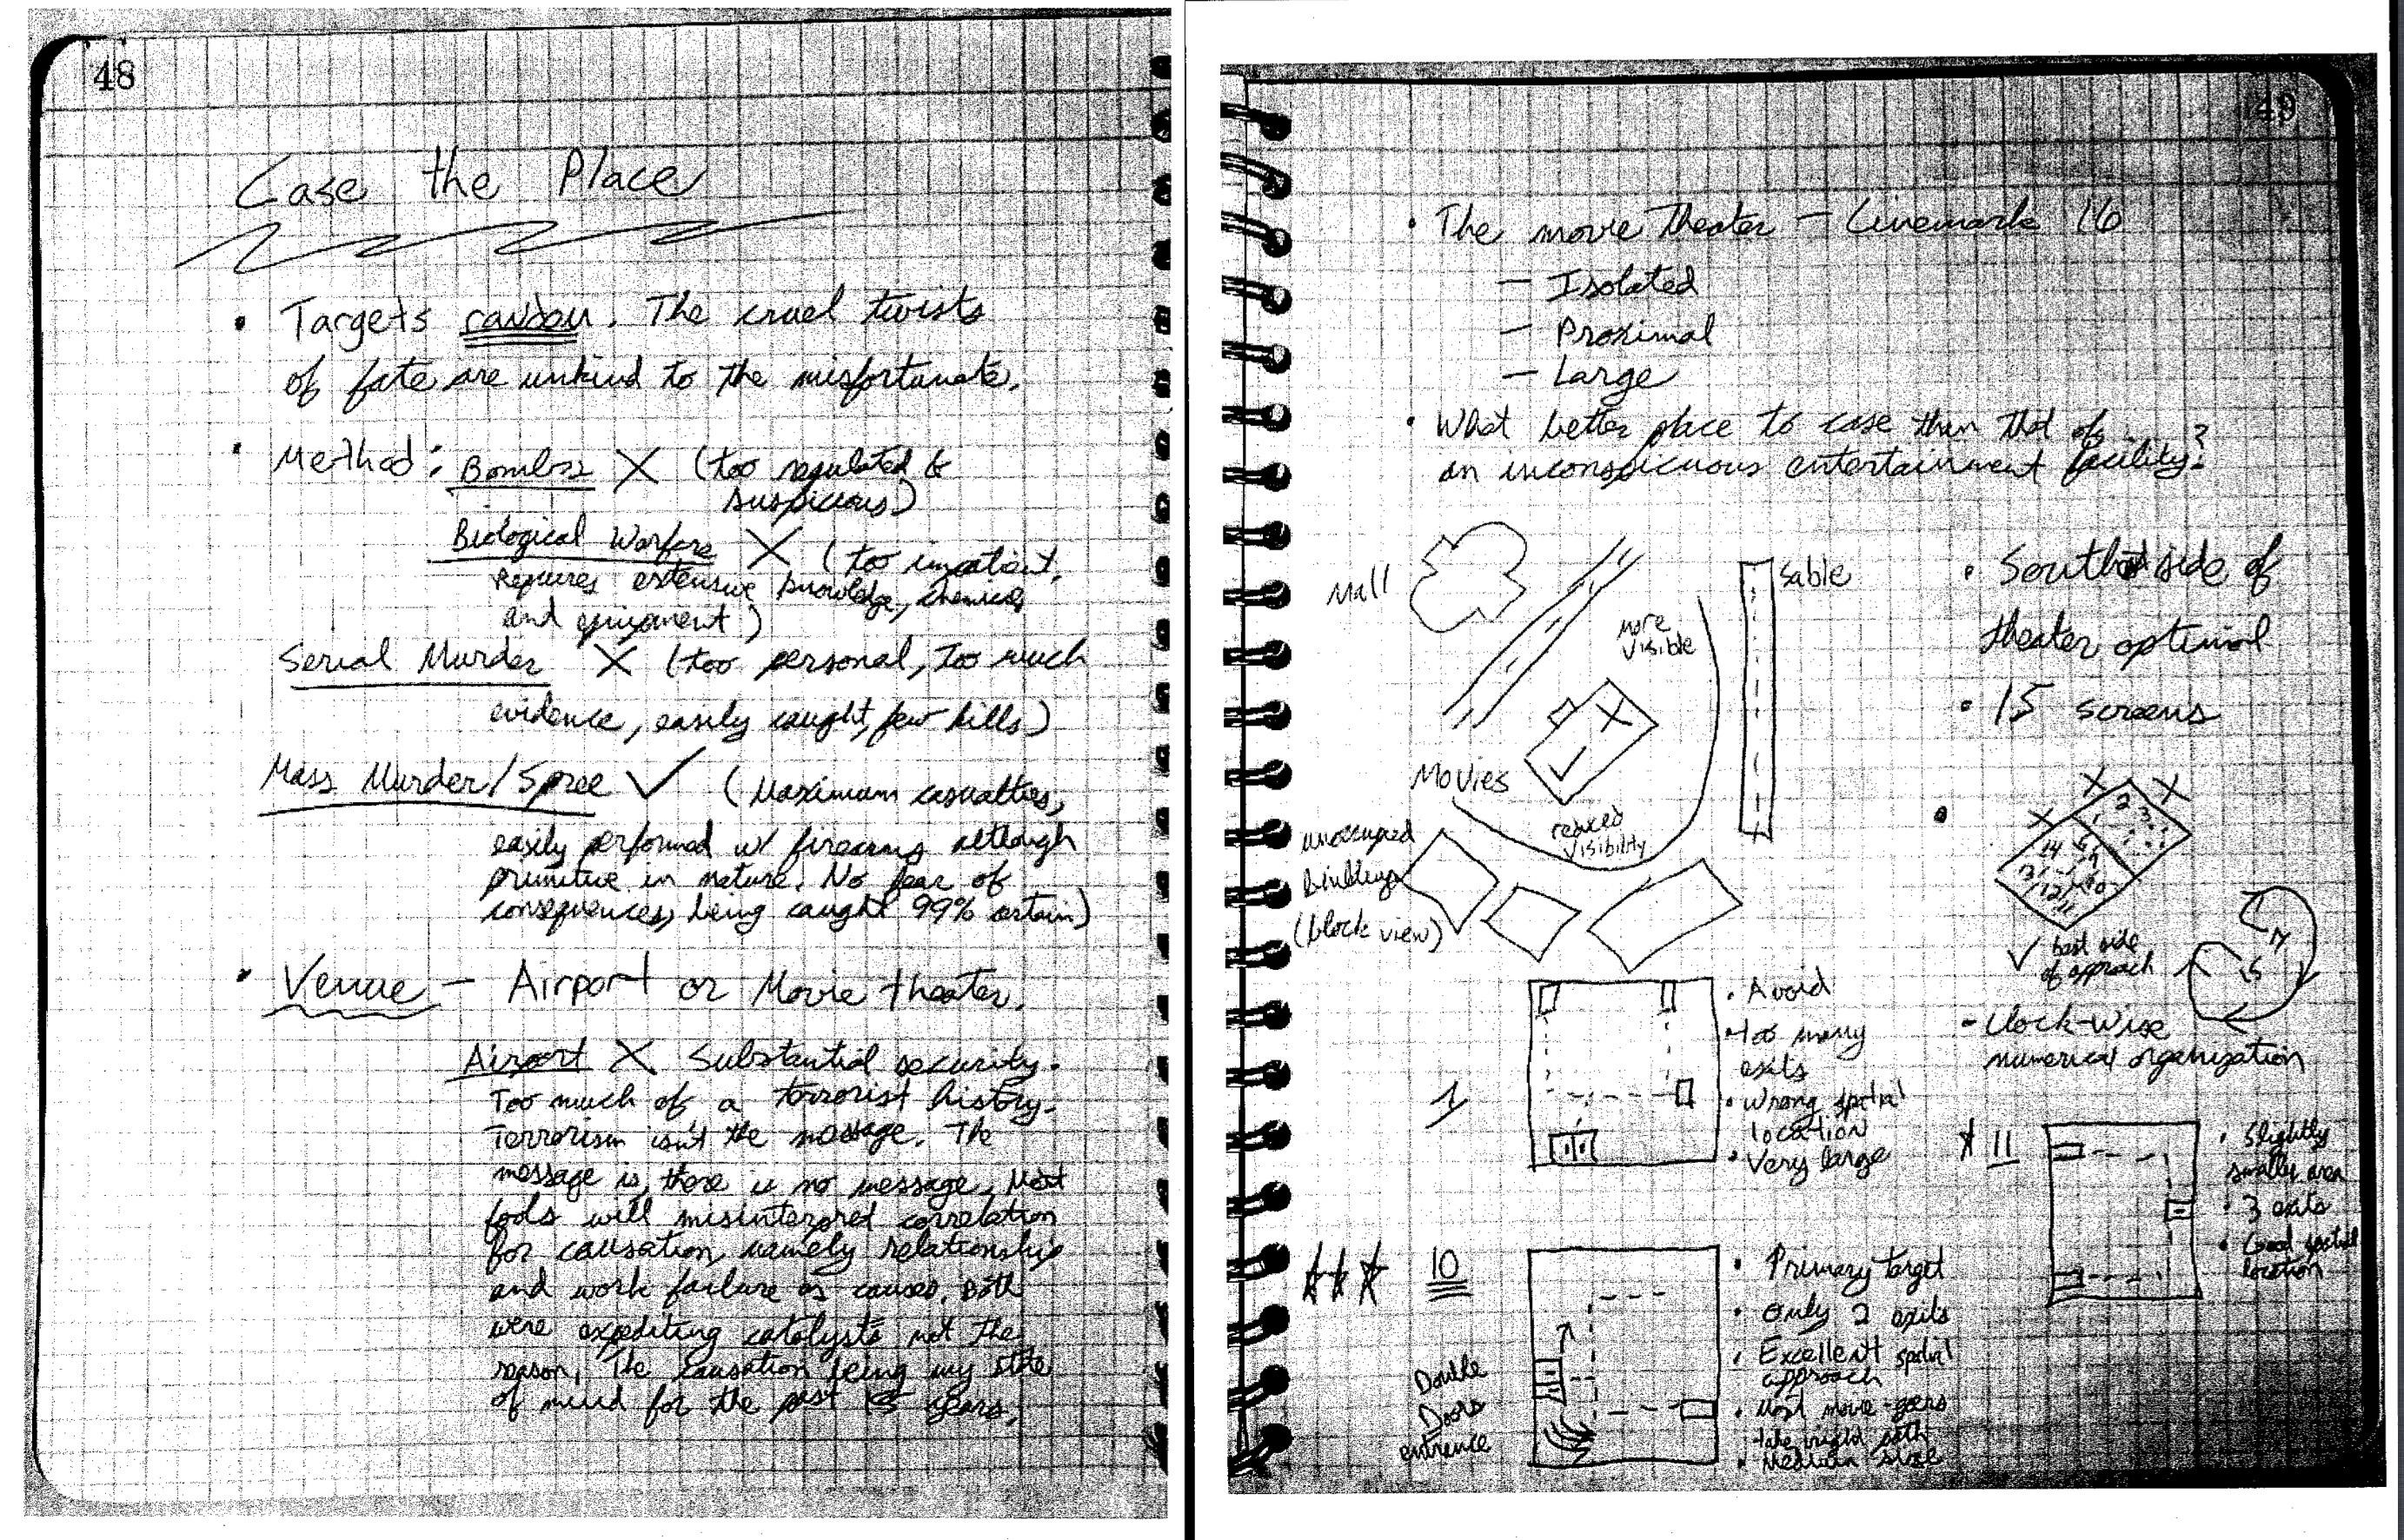 48
Case the Place
• Targets random. The cruel twists
of fate are unkind to the misfortunate.
• Method: Bombs X (too regulated &
suspicious)
Biological Warfare X (too impatient,
requires extensive knowledge, chemicals
and equipment)
Serial Murder X (too personal, too much
evidence, easily caught, few kills)
Mass Murder/Spree ✓ (Maximum casualties,
easily performed w/ firearms although
primitive in nature. No fear of
consequences, being caught 99% certain)
• Venue – Airport or Movie theater.
Airport X Substantial security.
Too much of a terrorist history.
Terrorism isn't the message. The
message is, there is no message. Most
fools will misinterpret correlation
for causation, namely relationship
and work failure as causes. Both
were expediting catalysts not the
reason. The causation being my state
of mind for the past 15 years.
49
• The movie theater – Cinemark 16
– Isolated
– Proximal
– Large
• What better place to case than that of
an inconspicuous entertainment facility?
Mall
Sable
more
visible
X
✓
Movies
reduced
visibility
unoccupied
buildings
(block view)
• South side of
theater optimal
• 15 screens
•
X X X
2 3
14
13 12 11 10
✓ best side
of approach
– Clock-wise
numerical organization
1
• Avoid
• too many
exits
• Wrong spatial
location
• Very large
★ 11
• Slightly
area
• 3 exits
• Good spatial
location
★★★ 10
Double
Doors
entrance
• Primary target
• Only 2 exits
• Excellent spatial
approach
• Most movie-goers
take path
• Medium size